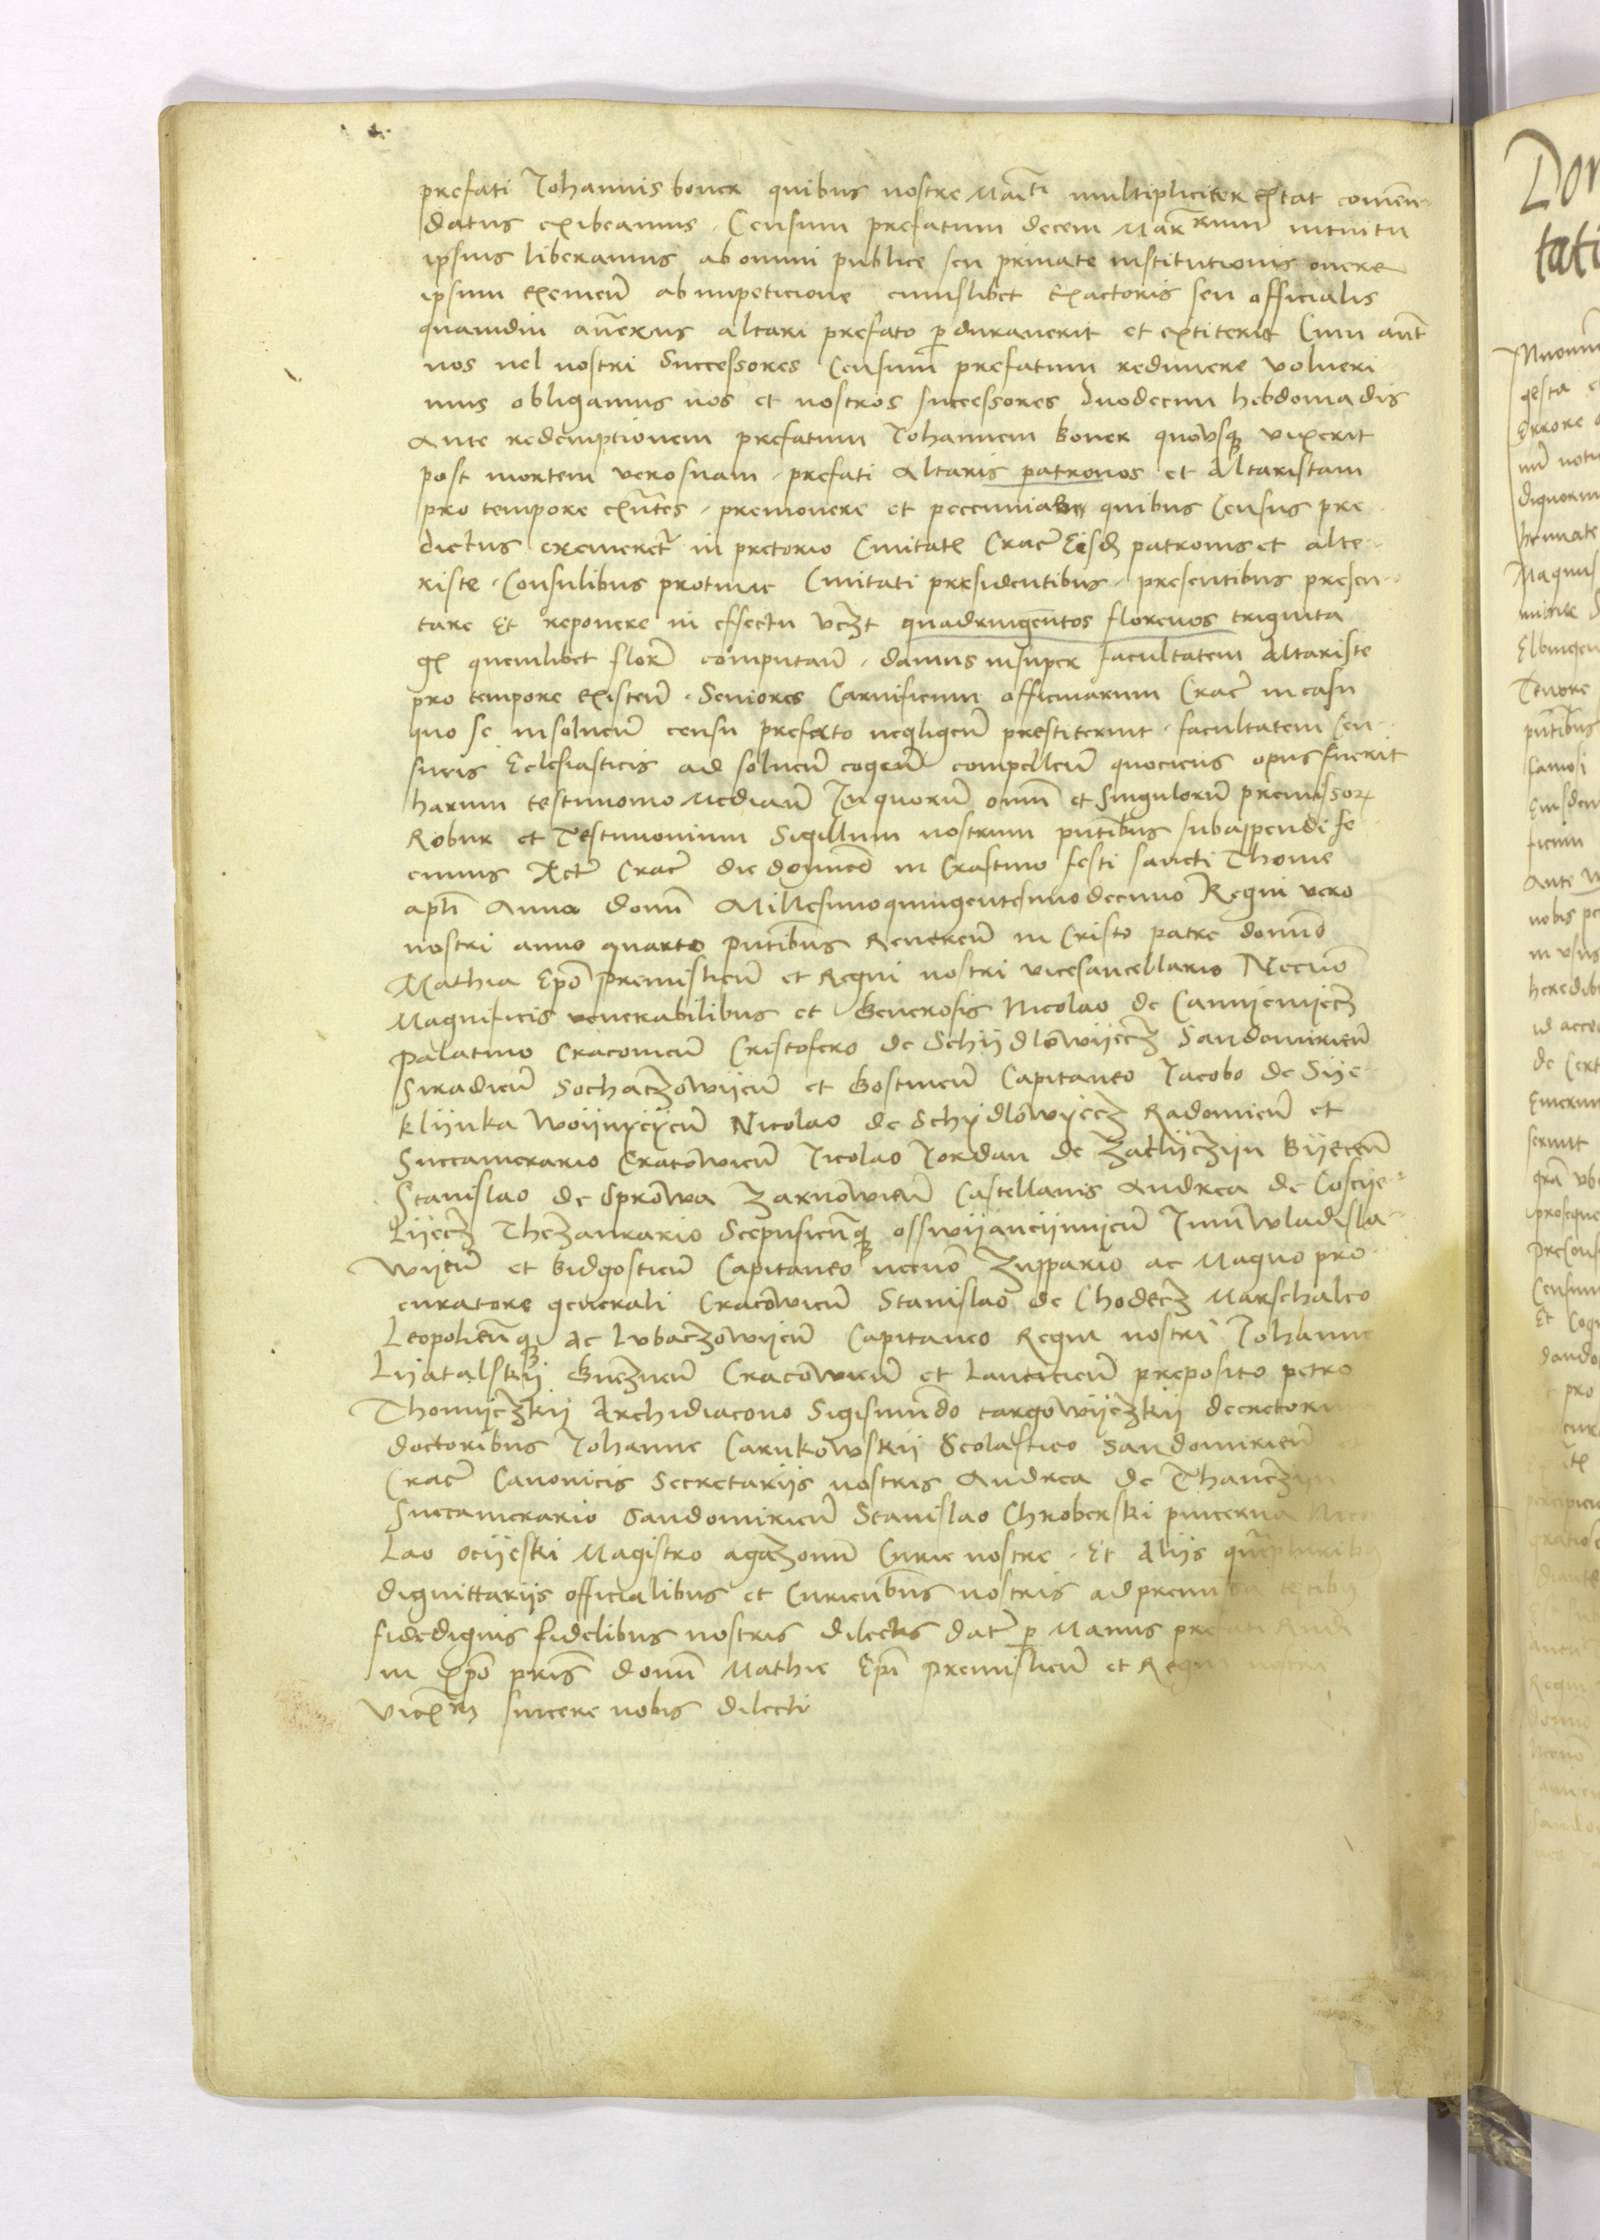 prefati Johannis boner quibus nostre Mati multipliciter extat comen-
datus exibeamus. Censum prefatum decem Marcarum intuitu
ipsius liberamus ab omni publice seu private institutionis onere
ipsum eximen ab impeticione cuiuslibet exactoris seu officialis
quamdiu annexus altari prefato perduraverit et extiterit Cum aut
nos vel nostri Successores Censum prefatum redimere volueri
mus obligamus nos et nostros successores duodecim hebdomadis
Ante redemptionem prefatum Johannem boner quousque vixerit
post mortem vero suam. prefati Altaris patronos et Altaristam
pro tempore exntes. premonere et peccuniam quibus Census pre
dictus exemeretur in pretorio Civitatis Crac Eisdem patronis et alte-
riste. Consulibus protunc Civitati presidentibus. presentibus presen-
tare Et reponere in effectu vczt quadringentos florenos triginta
gr quemlibet florn computan. damus insuper facultatem Altariste
pro tempore existen. Seniores Carnificum officinarum Crac in casu
quo se in solven censu prefato negligen prestiterint. facultatem Cen-
suris Eclesiasticis ad solven cogen compellen quociens opus fuerit
harum testimonio Median In quorum omn et singulorum premissor
Robur et Testimonium Sigillum nostrum pntibus subappendi fe
cimus Actum Crac die dominico in Crastino festi sancti Thome
apli Anno domi Millesimoquingentesimodecimo Regni vero
nostri anno quarto pntibus Reveren in Cristo patre domino
Mathia Epo Premislien et Regni nostri vicesancellario Necno
Magnificis venerabilibus et Generosis Nicolao de Camyenyecz
Palatino Cracovien Cristofero de Schydlowyecz Sandomirien
Siradien Sochaczowyen et Gostinen Capitaneo Jacobo de Sye-
klynka Woynicien Nicolao de Schydlowyecz Radomien et
Succamerario Cracowien Nicolao Jordan de Zaklyczyn Byecen
Stanislao de Sprowa Zarnowien Castellanis Andrea de Coscye-
lyecz Thezaurario Scepusienque osswyancymien Juniwladisla-
wyen et bidgostien Capitaneo necno Zuppario ac Magno pro
curatore generali Cracowien Stanislao de Chodecz Marschalco
Leopolienque ac Lubaczowyen Capitaneo Regni nostri Johanne
Lyatalsky Gneznen Cracowien et Lancicien preposito petro
Thomyczky Archidiacono Sigismundo targowyczky decretorum
doctoribus Johanne Carnkowsky Scolastico Sandomirien
Crac Canonicis Secretariis nostris Andrea de Thanczyn
Succamerario Sandomirien Stanislao Chroberski pincerna Nico
lao ocyeski Magistro agazonum Curie nostre. Et Aliis quampluribus
dignittariis officialibus et Curiensibus nostris ad premissa testibus
fidedignis fidelibus nostris dilectis dat per Manus prefati Rndi
in xpo pris domi Mathie Epi Premislien et Regni nostri
vicecancellarii sincere nobis dilecti